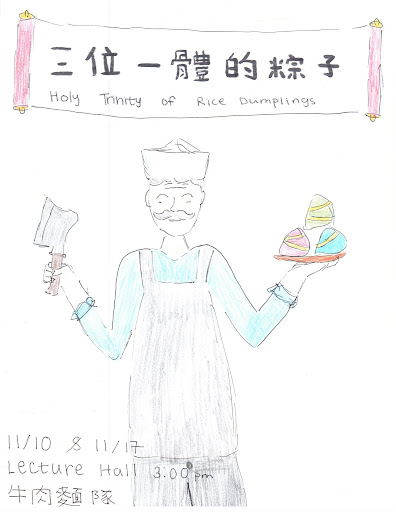 三位一體的粽子
Holy Trinity of Rice Dumplings
11/10 & 11/17
Lecture Hall 3.00 pm
牛肉麵隊